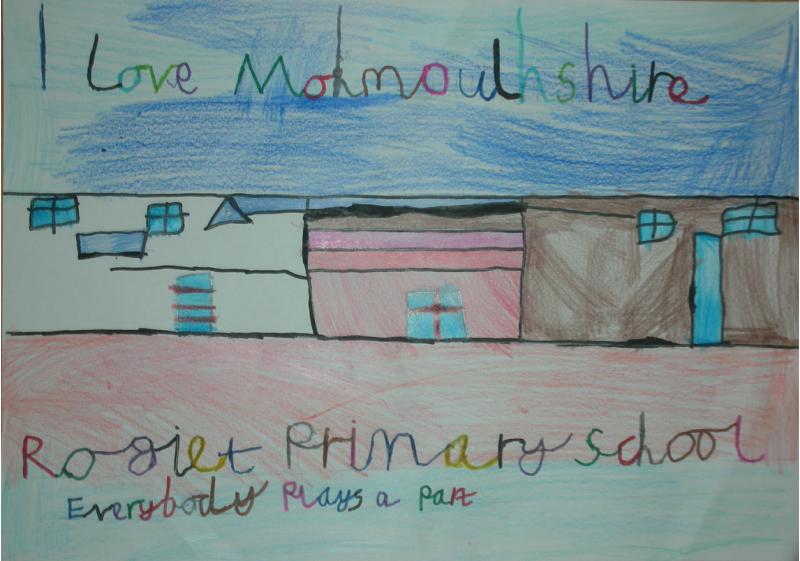 I Love Monmouthshire
Rogiet Primary School
Everybody Plays a Part